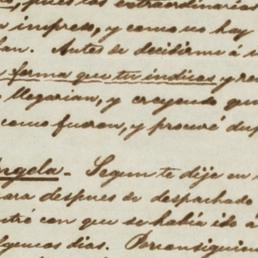 , pues las extraordinarias
impreso, y como no hay
. Antes de decidirme á
forma que tu indicas y re
llegarian, y creyendo que
como fueron, y procuré dup
ngela. Segun te dije en
ara despues de despachado
ntré con que se habia ido á
lgunos dias. Por consiguien